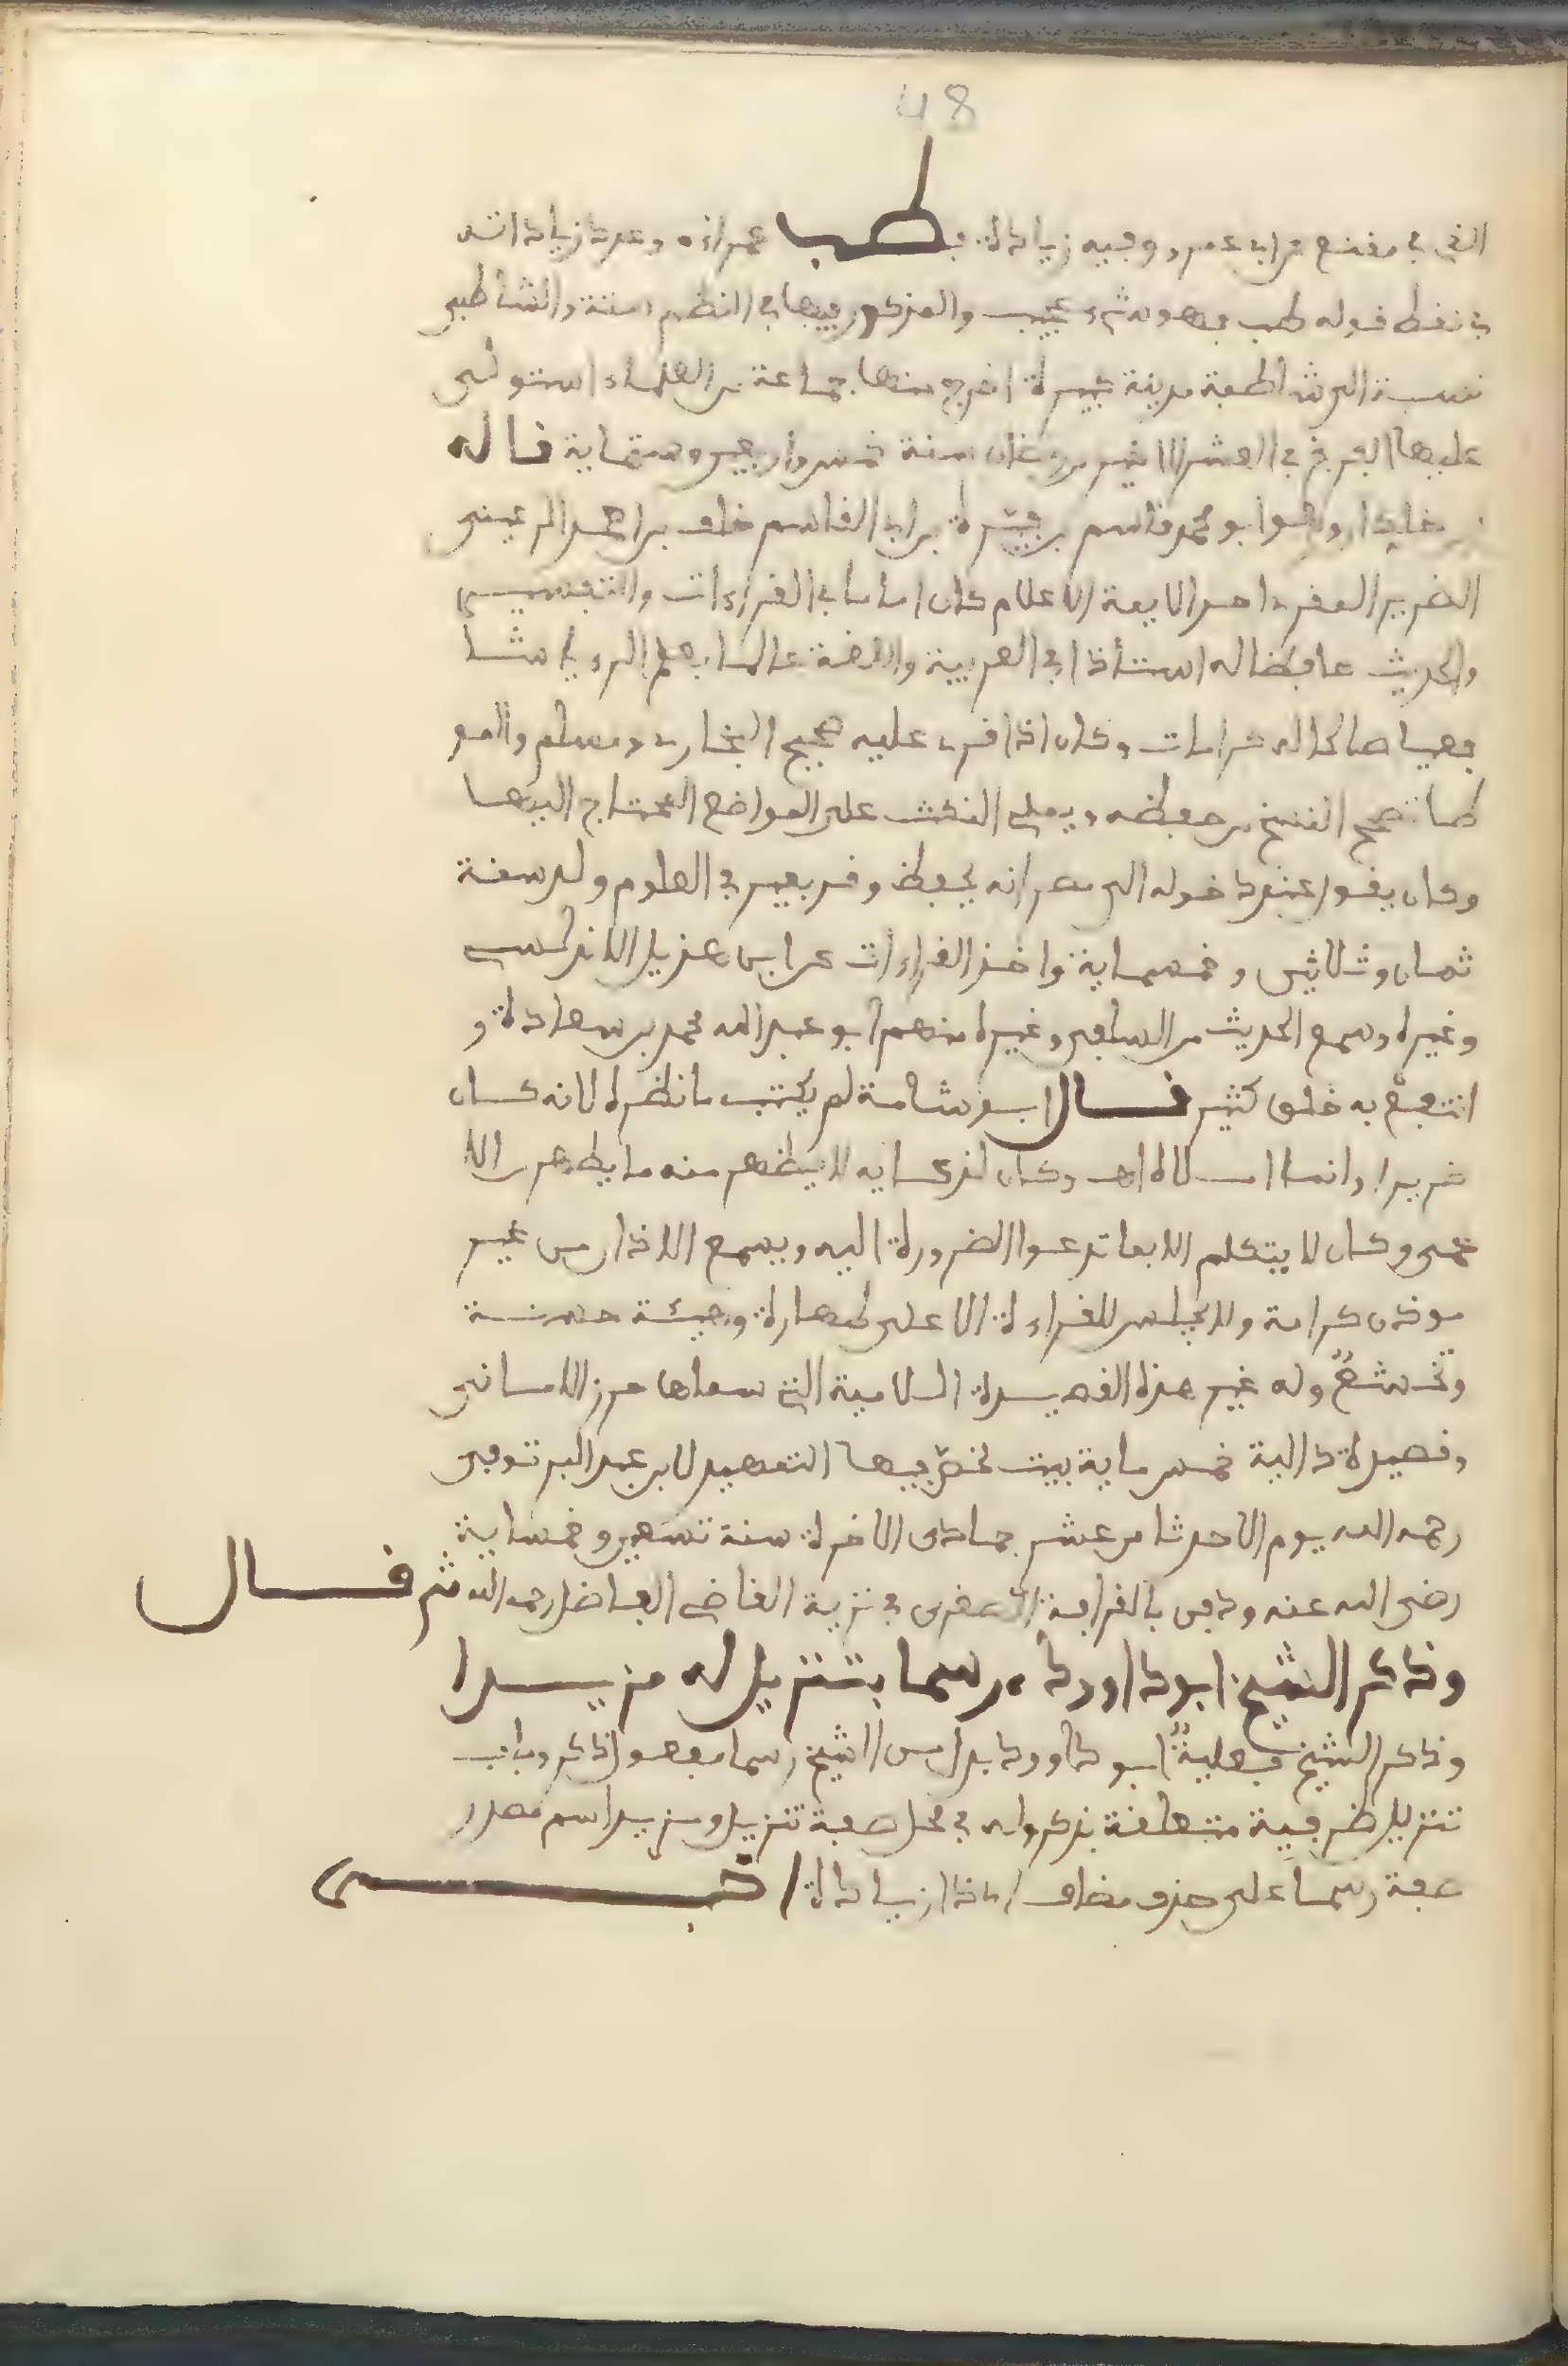 48
الذي في مقنع عن ابي عمر وفيه زيادة فـ طب عمرانه وعدد زياداته
في نقط قوله طب فهو شيء عجيب والمذكور فيها في النظم ستة والشاطبي
نسبة الى شاطبة مدينة كبيرة اخرج منها جماعة من العلماء استولى
عليها الافرنج في العشر الاخير من رمضان سنة خمس واربعين وستماية قاله
وهو ابو محمد قاسم بن فيرة بن ابي القاسم خلف بن احمد الرعيني
الضرير المقرء احد الايمة الاعلام كان اماما في القراءات والتفسير
والحديث حافظا له استاذا في العربية واللغة عالما بعلم الرءيا مشا
فهيا صالحا له كرامات وكان اذا قرء عليه صحيح البخاري ومسلم والمو
طا تصحح النسخ من حفظه ويملي النكت على المواضع المحتاج اليها
وكان يقول عند دخوله الى مصر انه يحفظ وقر بعير في العلوم ولد سنة
ثمان وثلاثين وخمسماية واخذ القراءات عن ابن هذيل الاندلسي
وغيره وسمع الحديث من السلفي وغيره منهم ابو عبد الله محمد بن سعادة و
انتفع به خلق كثير قال ابو شامة لم يكتب ما نظره لانه كان
ضريرا وانما املاه اهـ وكان لذكايه لا يظهر منه ما يظهر من الا
عمى وكان لا يتكلم الا بما تدعوا الضرورة اليه ويسمع الاذان من غير
موذن كرامة ولا يجلس للقراءة الا على طهارة وهيئة حسنة
وتخشع وله غير هذه القصيدة اللامية التي سماها حرز الاماني
وقصيدة دالية خمس ماية بيت لخص فيها التمهيد لابن عبد البر توفي
رحمه الله يوم الاحد ثامن عشر جمادى الاخرة سنة تسعين وخمسماية
رضي الله عنه ودفن بالقرافة الصغرى في تربة القاضي الفاضل رحمه الله ثم قال
وذكر الشيخ ابو داوودا ء رسما بتنزيل له مزيدا
وذكر الشيخ فعلية ابو داوود بدل من الشيخ رسما مفعول ذكر وباب
تنزيل ظرفية متعلقة بذكر وله في محل صفة تنزيل ومزيدا اسم مصدر
صفة رسما على حذف مضاف اي ذا زيادة اخـبـر